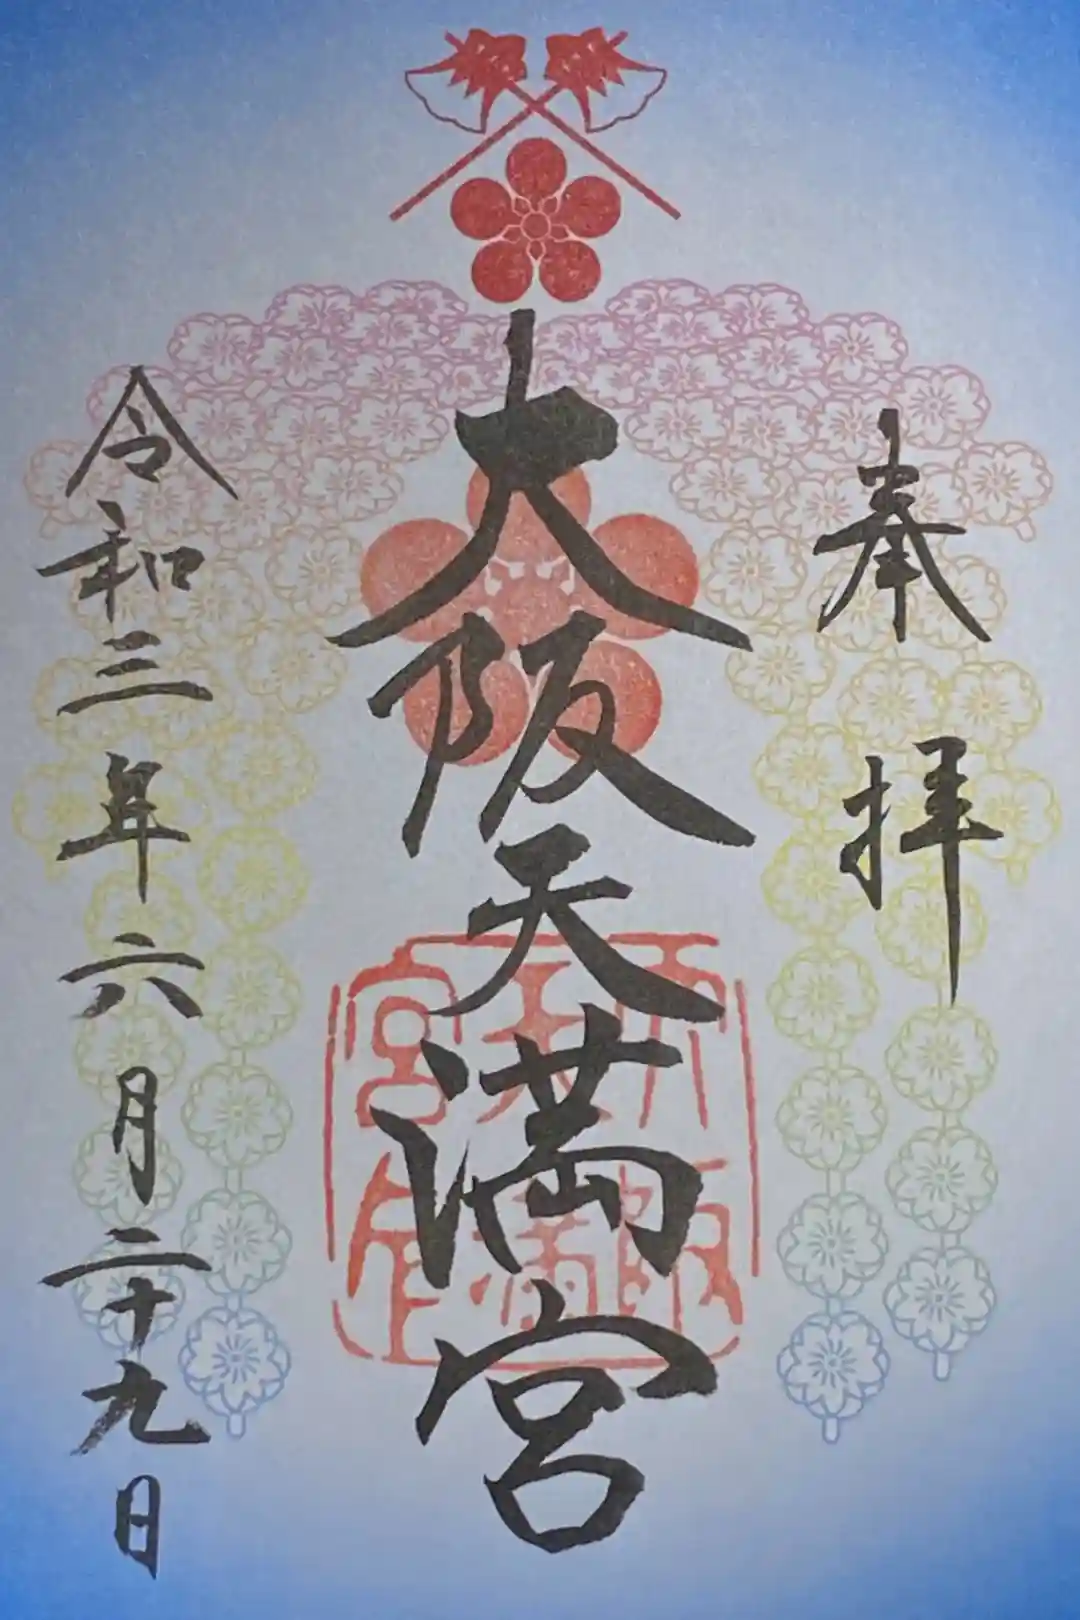 奉拝
大阪天満宮
令和三年六月二十九日
大阪
天満
宮印